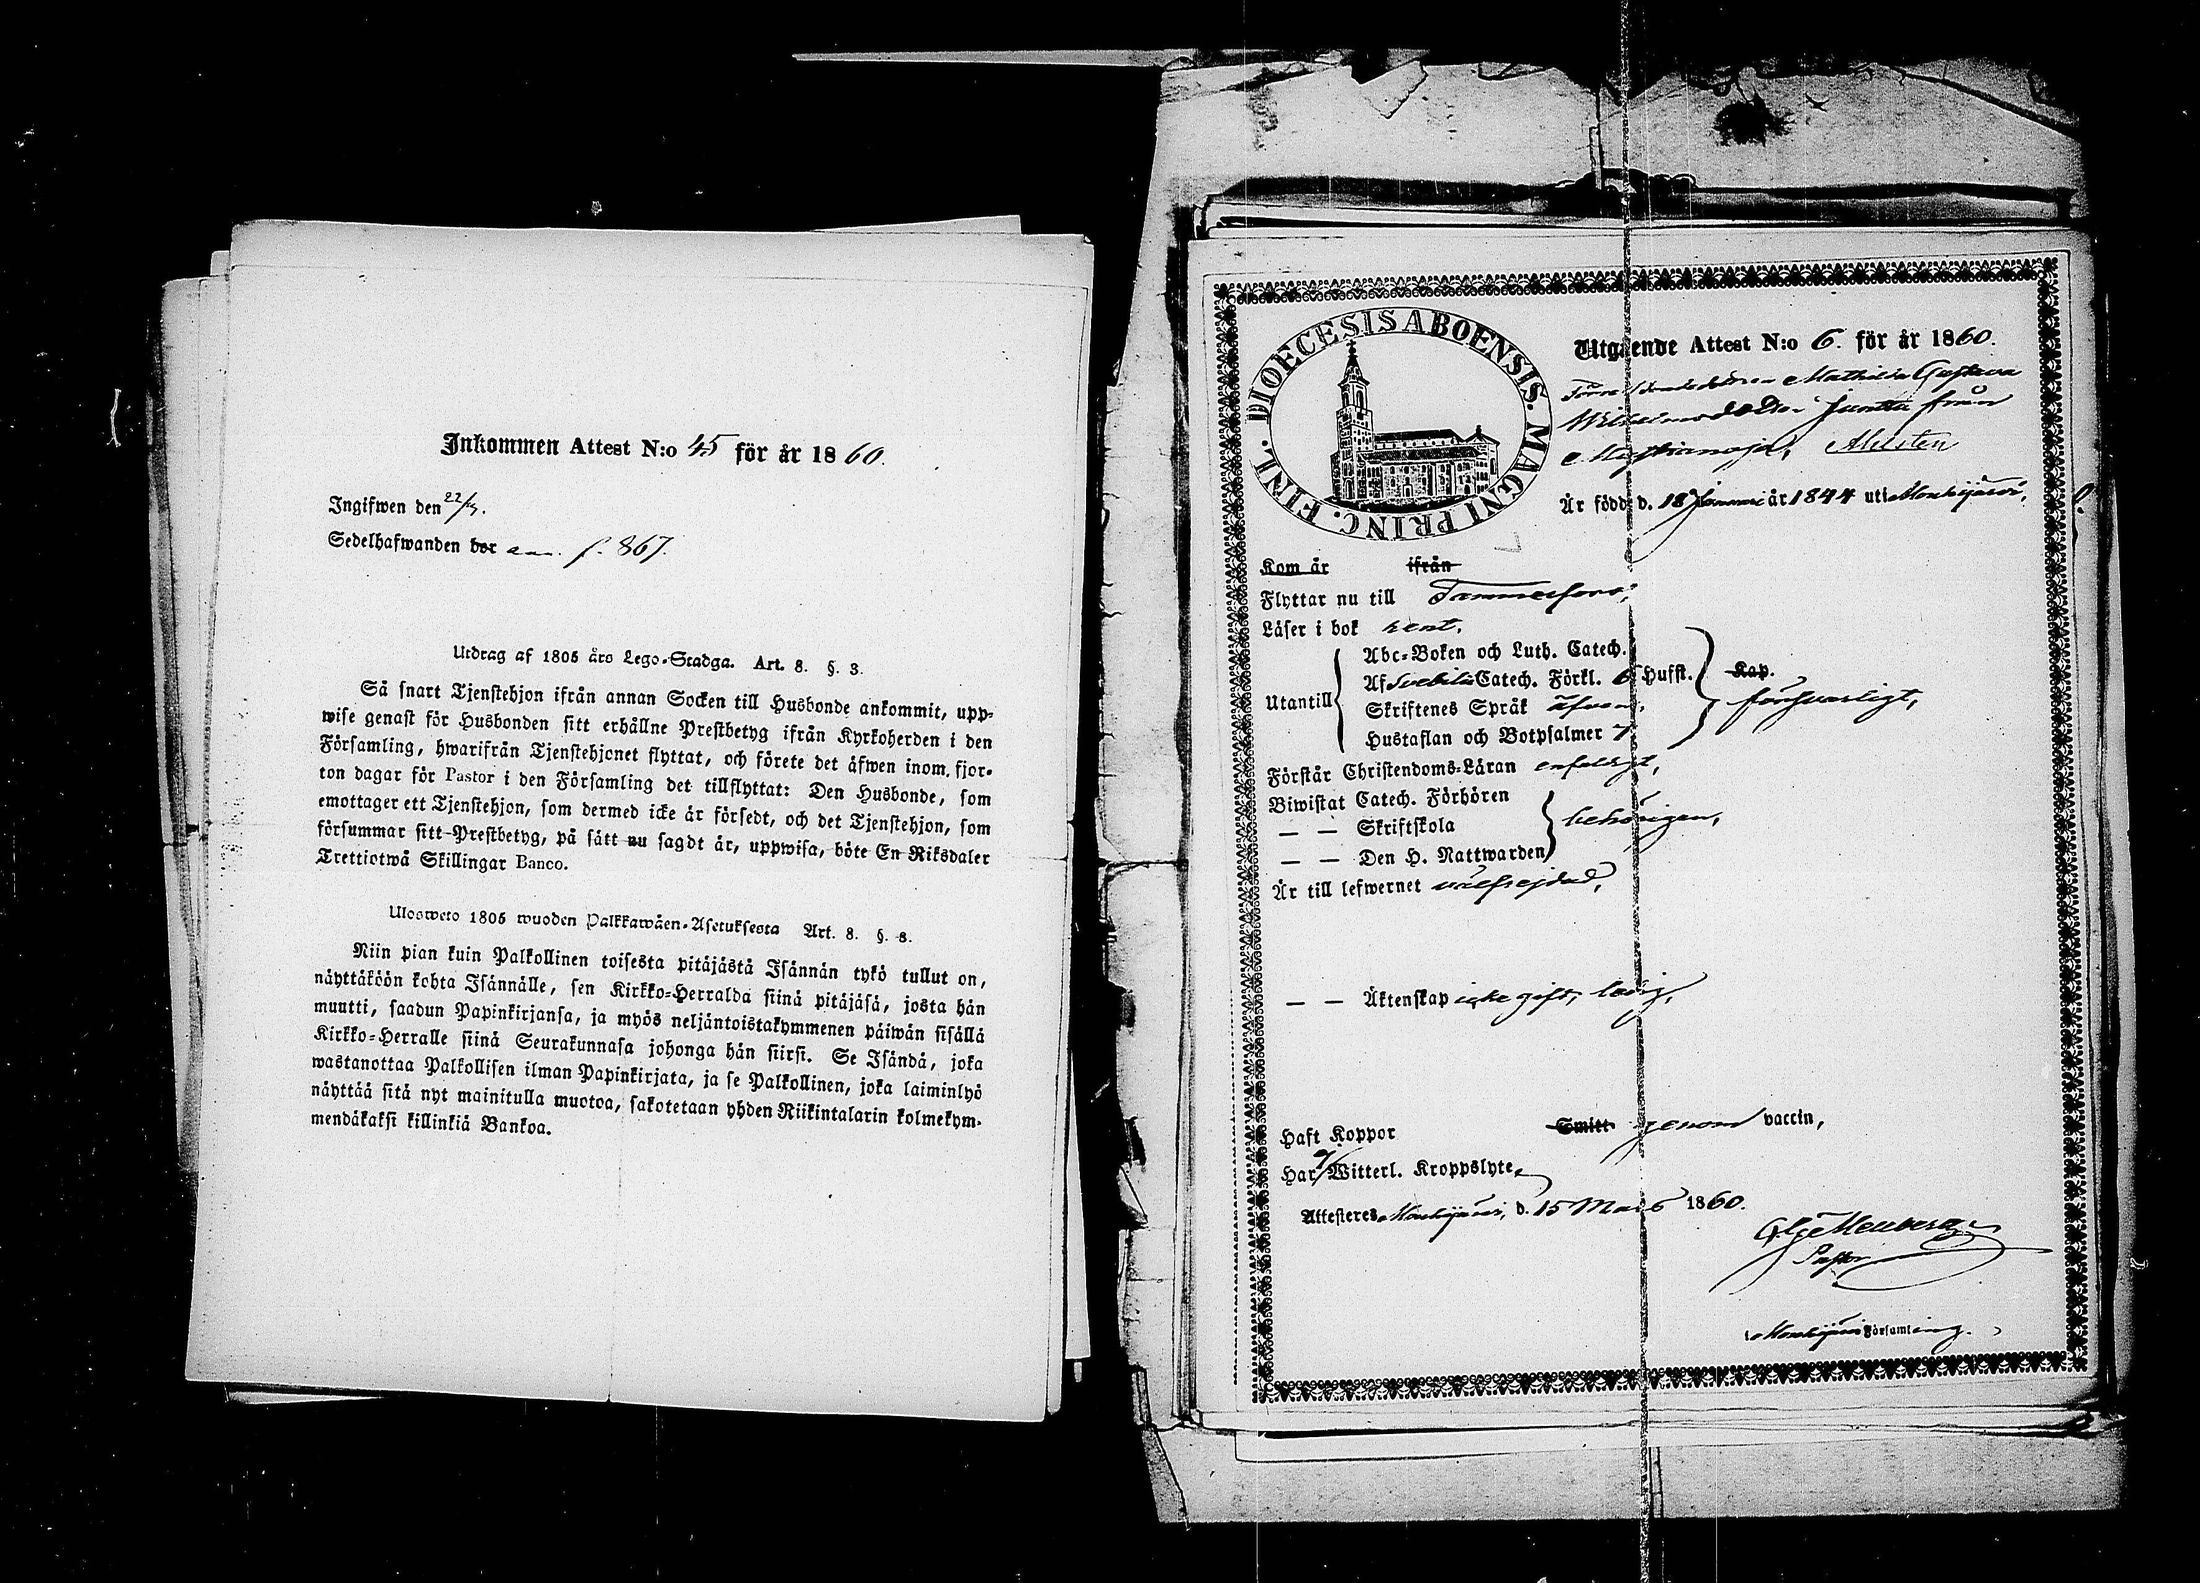 Inkommen Attest N:o 45 för år 1860.
Ingifwen den 22/3.
Sedelhafwanden bor ann. f. 867.
Utdrag af 1805 års Lego-Stadga. Art. 8. §. 3.
Så snart Tjenstehjon ifrån annan Socken till Husbonde ankommit, upp-
wise genast för Husbonden sitt erhållne Prestbetyg ifrån Kyrkoherden i den
Församling, hwarifrån Tjenstehjonet flyttat, och förete det äfwen inom fjor-
ton dagar för Pastor i den Församling det tillflyttat: Den Husbonde, som
emottager ett Tjenstehjon, som dermed icke är försedt, och det Tjenstehjon, som
försummar sitt Prestbetyg, på sätt nu sagdt är, uppwisa, böte En Riksdaler
Trettiotwå Skillingar Banco.
Ulosweto 1805 wuoden Palkkawäen-Asetuksesta Art. 8. §. 8.
Niin pian kuin Palkollinen toisesta pitäjästä Isännän tykö tullut on,
näyttäköön kohta Isännälle, sen Kirkko-Herralda siinä pitäjäsä, josta hän
muutti, saadun Papinkirjansa, ja myös neljäntoistakymmenen päiwän sisällä
Kirkko-Herralle siinä Seurakunnasa johonga hän siirsi. Se Isändä, joka
wastanottaa Palkollisen ilman Papinkirjata, ja se Palkollinen, joka laiminlyö
näyttää sitä nyt mainitulla muotoa, sakotetaan yhden Riikintalarin kolmekym-
mendäkaksi killinkiä Bankoa.
DIOECESIS ABOENSIS. MAGNI PRINC. FINL.
Utgående Attest N:o 6. för år 1860.
Mathilda Gustava
Wilhelmsdotter från
Är född d. 18 Januari år 1844 uti Mouhijärvi,
Kom år ifrån
Flyttar nu till Tammerfors,
Läser i bok rent,
Abc-Boken och Luth. Catech.
Af Svebilii Catech. Förkl. 6 Hufst. Kap.
Utantill Skriftenes Språk äfven, försvarligt,
Hustaflan och Botpsalmer 7
Förstår Christendoms-Läran enfaldigt,
Biwistat Catech. Förhören
— — Skriftskola behörigen,
— — Den H. Nattwarden
Är till lefwernet välfrejdad,
— — Äktenskap icke gift, ledig,
Haft Koppor Smitt genom vaccin,
Har Witterl. Kroppslyte
Attesteres Mouhijärvi, d. 15 Mars 1860.
Pastor
i Mouhijärvi Församling.